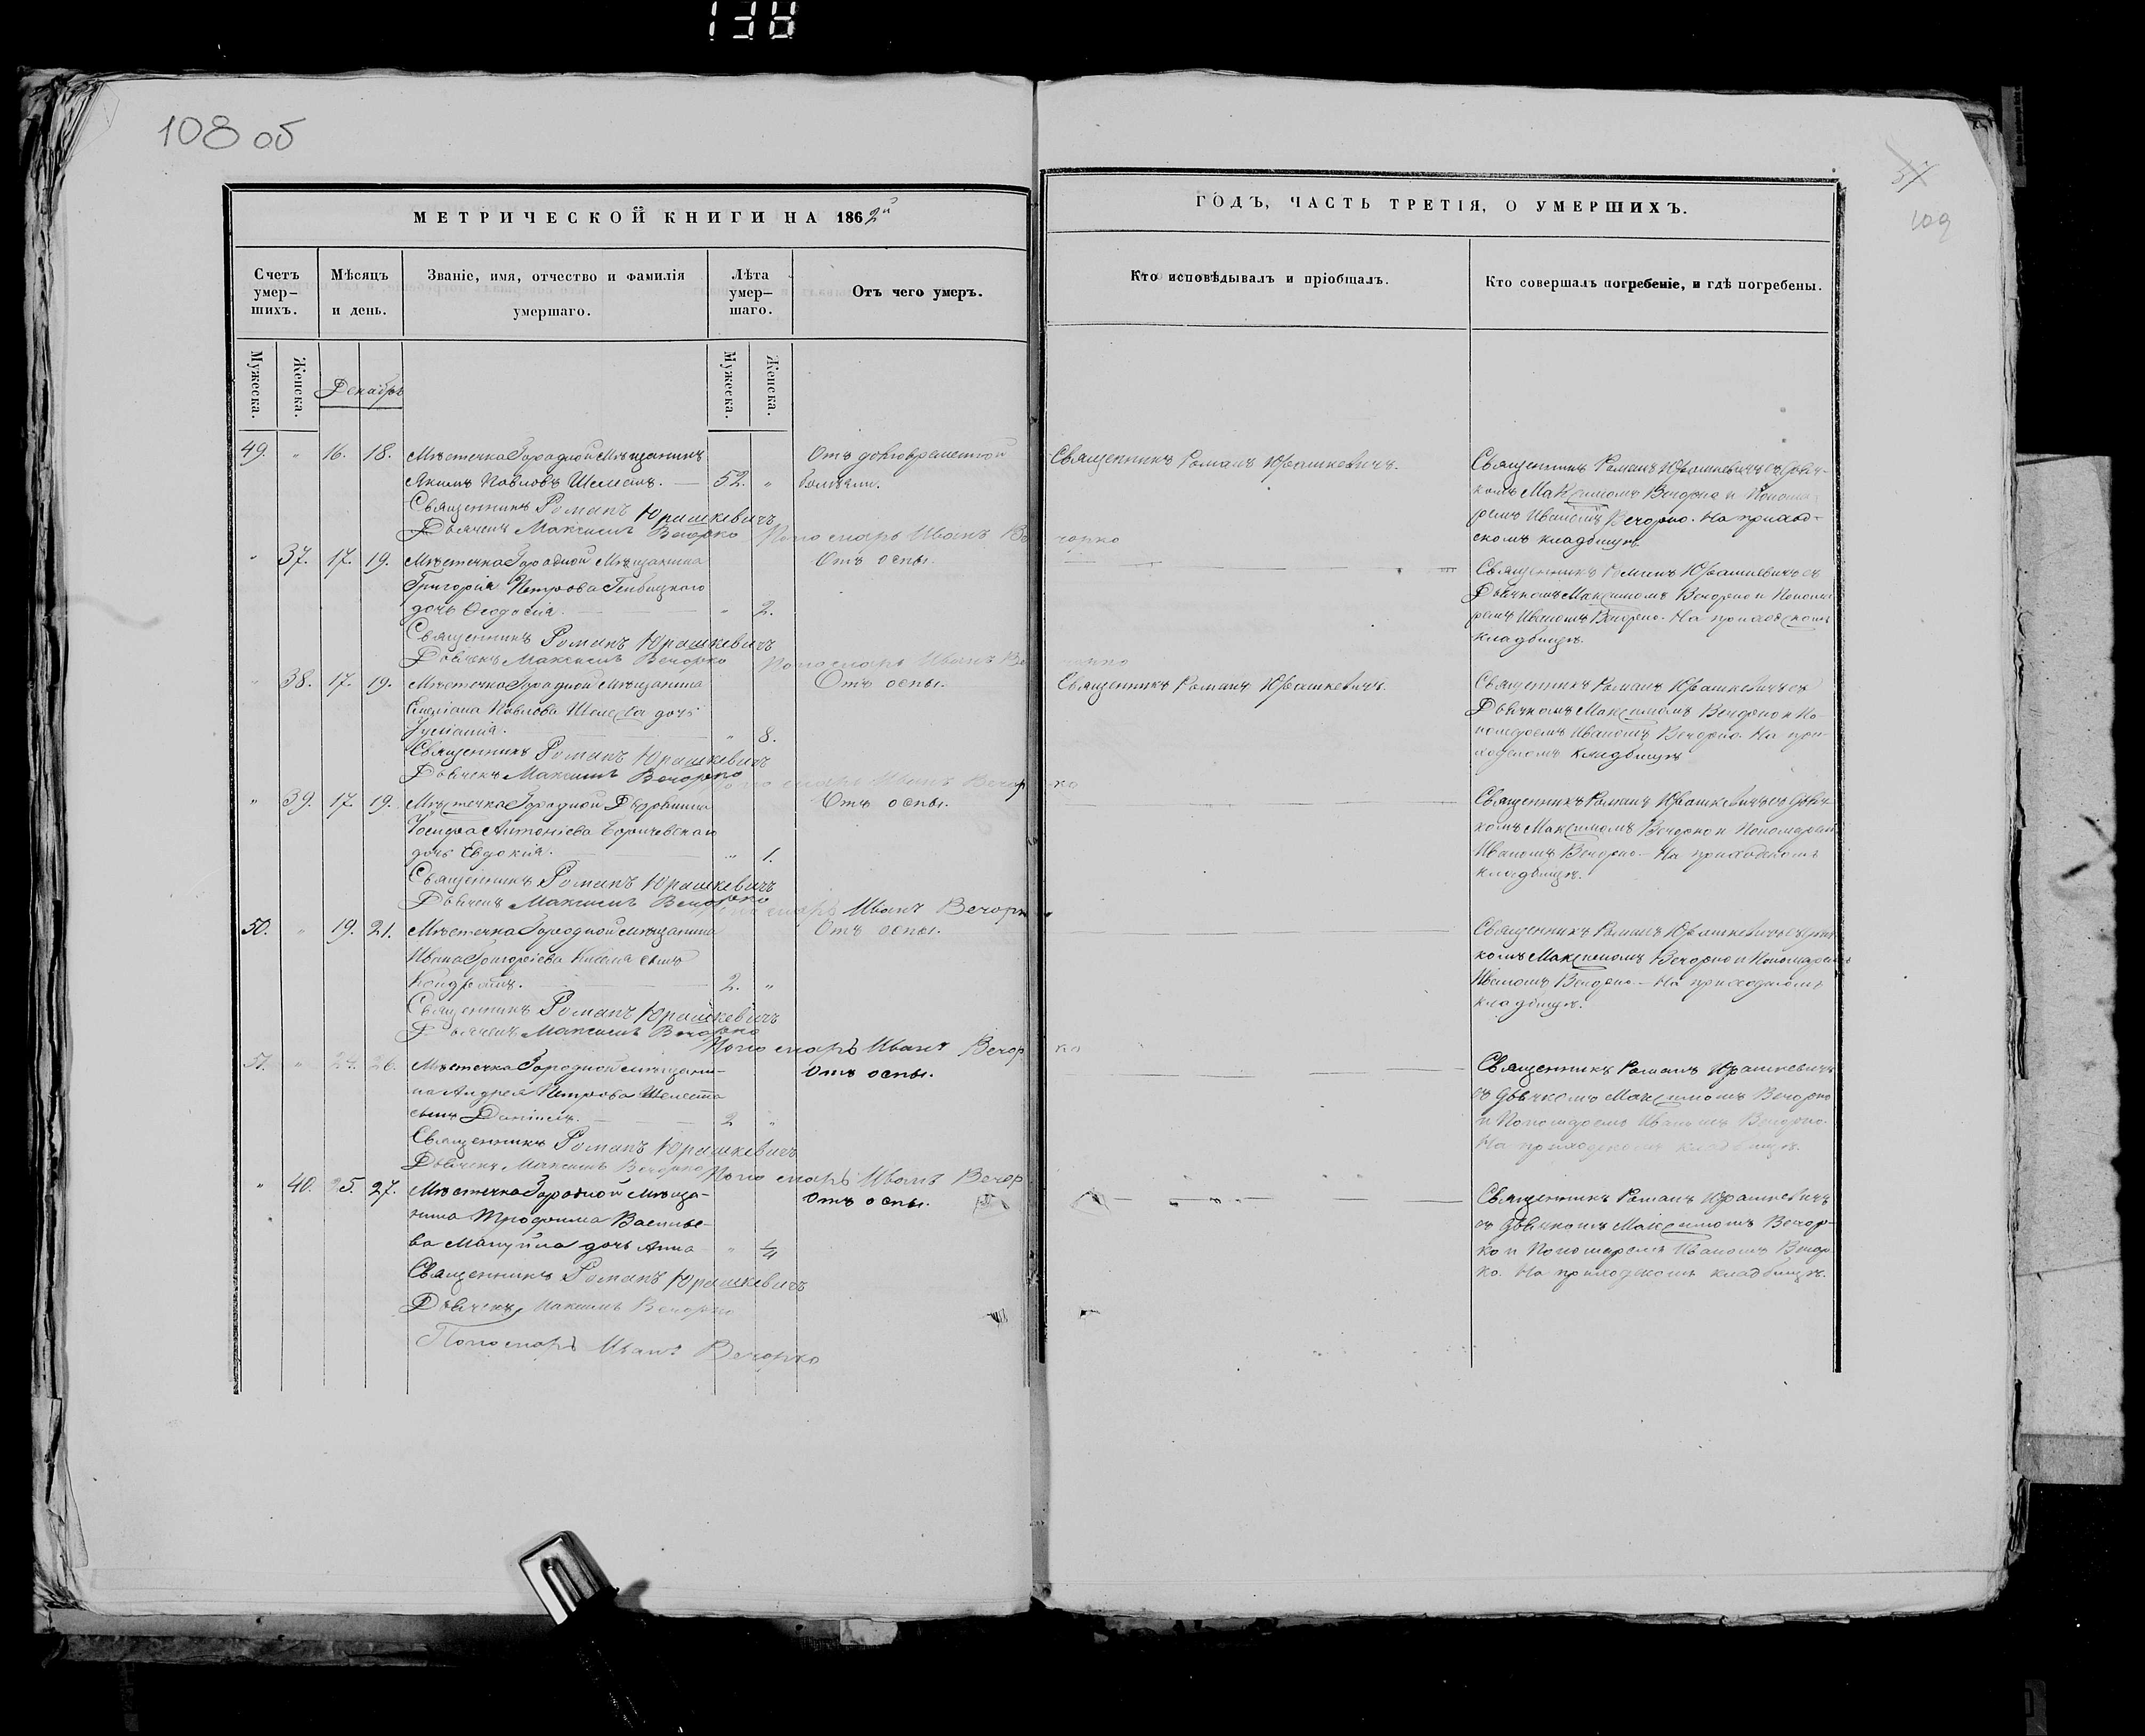 138
108 об
57
109
МЕТРИЧЕСКОЙ КНИГИ НА 1862й
ГОДЪ, ЧАСТЬ ТРЕТІЯ, О УМЕРШИХЪ.
Счетъ умер–шихъ.
Мѣсяцъ и день.
Званіе, имя, отчество и фамилія умершаго.
Лѣта умер–шаго.
Отъ чего умеръ.
Кто исповѣдывалъ и пріобщалъ.
Кто совершалъ погребеніе, и гдѣ погребены.
Мужеска.
Женска.
Декабрь
Мужеска.
Женска.
49. " 16. 18. Мѣстечка Городной Мѣщанинъ
Якимъ Павловъ Шелестъ. 52. "
Отъ долговременной
болѣзни.
Священникъ Романъ Юрашкевичъ.
Священникъ Романъ Юрашкевичъ съ Дьяч-
комъ Максимомъ Вечорко и Понома-
ремъ Иваномъ Вечорко. На приход-
скомъ кладбищѣ.
Священникъ Романъ Юрашкевичъ
Дьячекъ Максимъ Вечорко Пономарь Иванъ Вечорко
" 37. 17. 19. Мѣстечка Городной Мѣщанина
Григорія Петрова
дочь Ѳеодосія. " 2.
Отъ оспы.
Священникъ Романъ Юрашкевичъ съ
Дьячкомъ Максимомъ Вечорко и Понома-
ремъ Иваномъ Вечорко. На приходскомъ
кладбищѣ.
Священникъ Романъ Юрашкевичъ
Дьячекъ Максимъ Вечорко Пономарь Иванъ Вечорко
" 38. 17. 19. Мѣстечка Городной Мѣщанина
Емеліана Павлова Шелеста дочь
Іуліанія. " 8.
Отъ оспы.
Священникъ Романъ Юрашкевичъ.
Священникъ Романъ Юрашкевичъ съ
Дьячкомъ Максимомъ Вечорко и По-
номаремъ Иваномъ Вечорко. На при-
ходскомъ кладбищѣ
Священникъ Романъ Юрашкевичъ
Дьячекъ Максимъ Вечорко Пономарь Иванъ Вечорко
" 39. 17. 19. Мѣстечка Городной
Іосифа Антоніева
дочь Евдокія. " 1.
Отъ оспы.
Священникъ Романъ Юрашкевичъ съ Дьяч-
комъ Максимомъ Вечорко и Пономаремъ
Иваномъ Вечорко. На приходскомъ
кладбищѣ.
Священникъ Романъ Юрашкевичъ
Дьячекъ Максимъ Вечорко Пономарь Иванъ Вечорко
50. " 19. 21. Мѣстечка Городной мѣщанина
Ивана Григоріева сынъ
Кондратъ. 2. "
Отъ оспы.
Священникъ Романъ Юрашкевичъ съ Дьяч-
комъ Максимомъ Вечорко и Пономаремъ
Иваномъ Вечорко. На приходскомъ
кладбищѣ.
Священникъ Романъ Юрашкевичъ
Дьячекъ Максимъ Вечорко
Пономарь Иванъ Вечорко
51. " 24. 26. Мѣстечка Городной мѣщани-
на Андрея Петрова Шелеста
сынъ Даніилъ. 2 "
Отъ оспы.
Священникъ Романъ Юрашкевичъ
съ Дьячкомъ Максимомъ Вечорко
и Пономаремъ Иваномъ Вечорко.
На приходскомъ кладбищѣ.
Священникъ Романъ Юрашкевичъ
Дьячекъ Максимъ Вечорко Пономарь Иванъ Вечор
" 40. 25. 27. Мѣстечка Городной Мѣща-
нина Трофима Василье-
ва Мануйла дочь Анна " 1/4
Отъ оспы.
Священникъ Романъ Юрашкевичъ
съ Дьячкомъ Максимомъ Вечор-
ко и Пономаремъ Иваномъ Вечор-
ко. На приходскомъ кладбищѣ.
Священникъ Романъ Юрашкевичъ
Дьячекъ Максимъ Вечорко
Пономарь Иванъ Вечорко